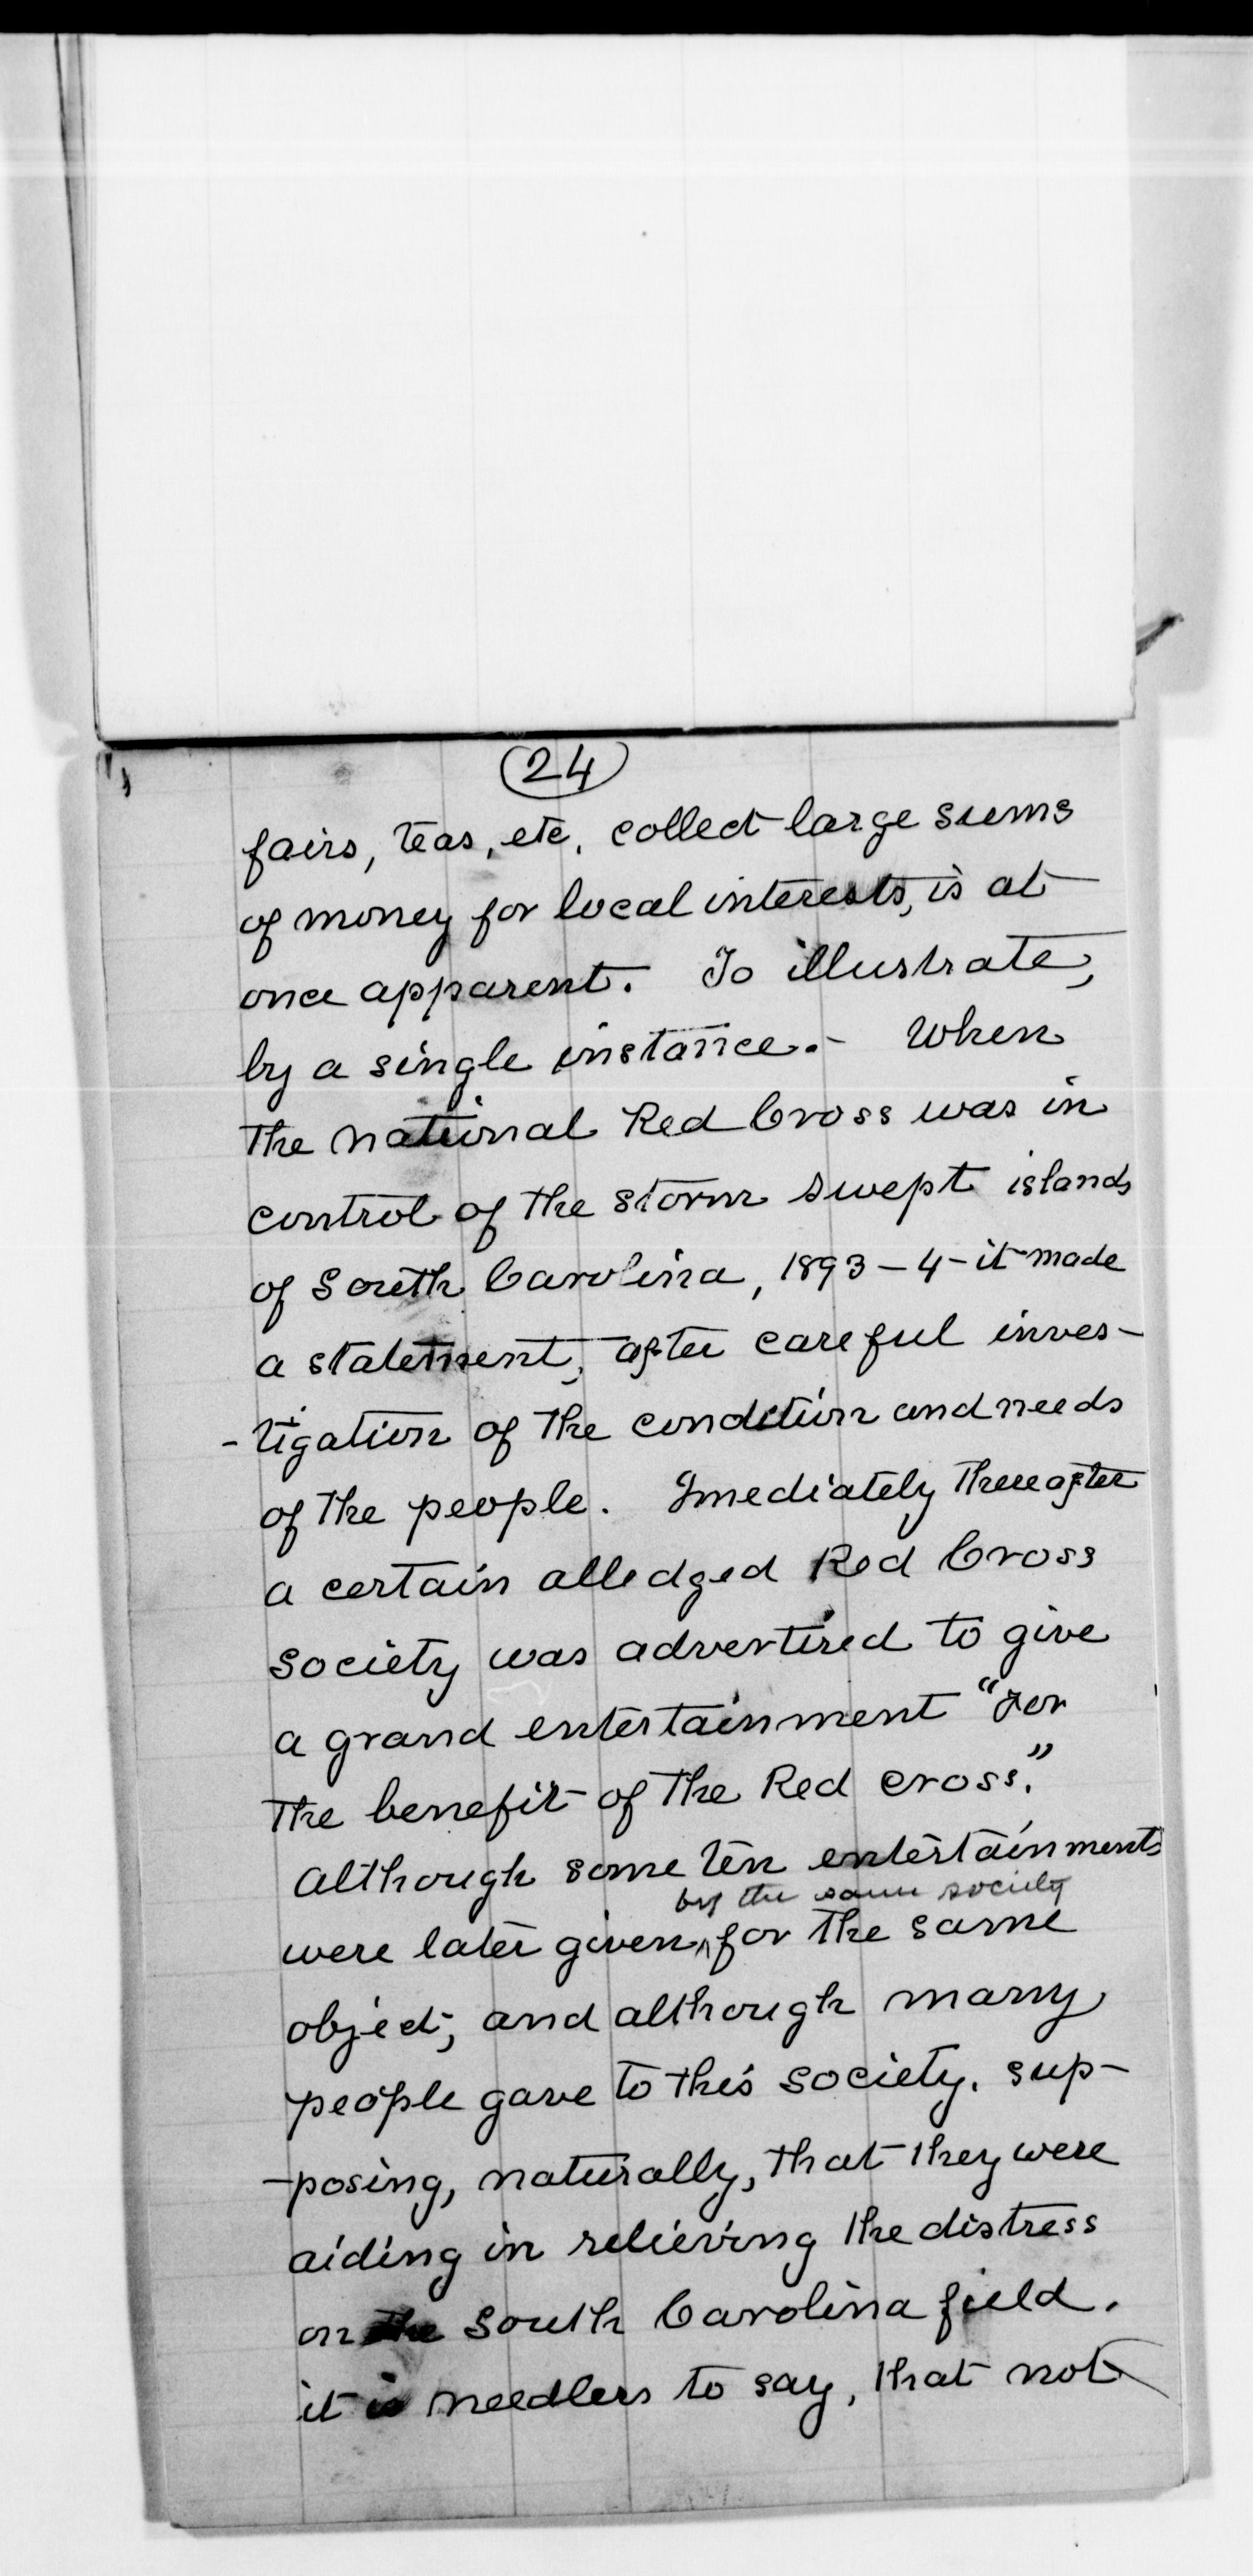 24
fairs, teas, etc. collect large sums
of money for local interests, is at
once apparent. To illustrate,
by a single instance.- When
the national Red Cross was in
control of the storm swept islands
of South Carolina, 1893-4-it made
a statement, after careful inves-
-tigation of the condition and needs
of the people. Imediately thereafter
a certain alledged Red Cross
society was advertised to give
a grand entertainment "For
the benefit of the Red Cross."
Although some ten entertainments
by the same society
were later given, ^ for the same
object, and although many
people gave to this society, sup-
-posing, naturally, that they were
aiding in relieving the distress
on the South Carolina field.
it is needless to say, that not